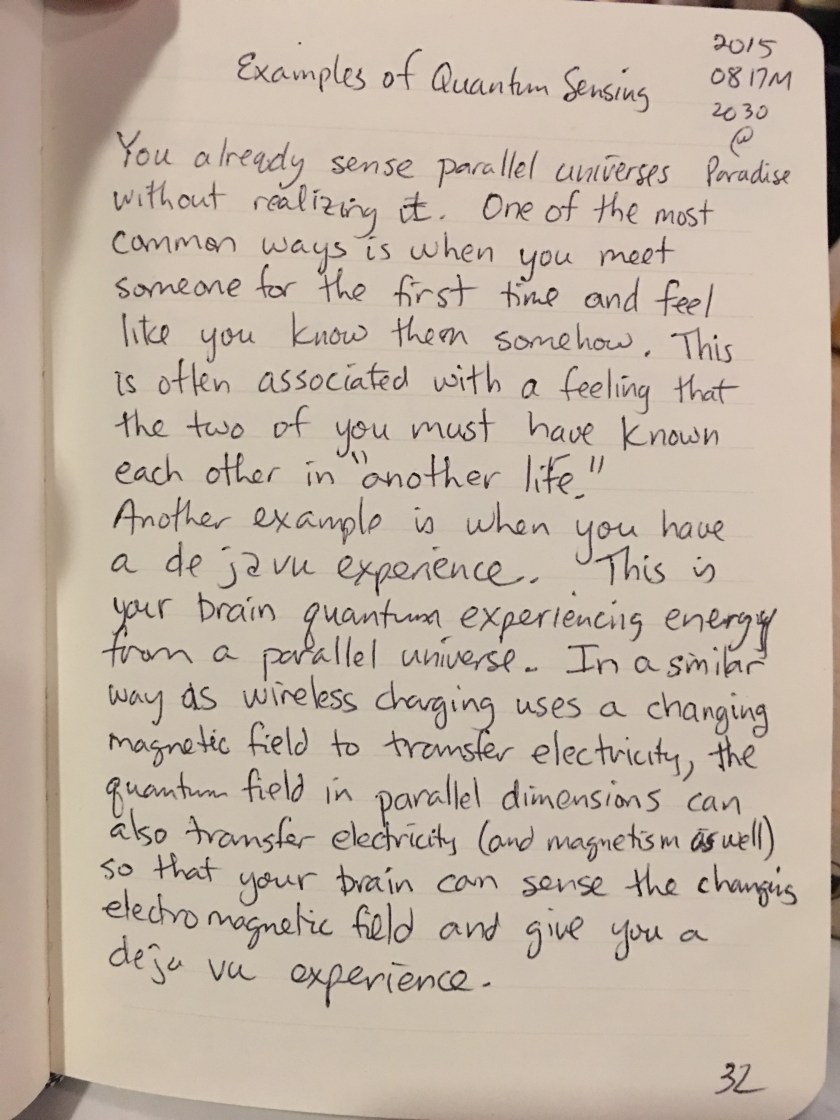 Examples of Quantum Sensing
2015
0817M
2030
@
Paradise
You already sense parallel universes
without realizing it. One of the most
common ways is when you meet
someone for the first time and feel
like you know them somehow. This
is often associated with a feeling that
the two of you must have known
each other in "another life."
Another example is when you have
a de ja vu experience. This is
your brain quantum experiencing energy
from a parallel universe. In a similar
way as wireless charging uses a changing
magnetic field to transfer electricity, the
quantum field in parallel dimensions can
also transfer electricity (and magnetism as well)
so that your brain can sense the changing
electromagnetic field and give you a
deja vu experience.
32